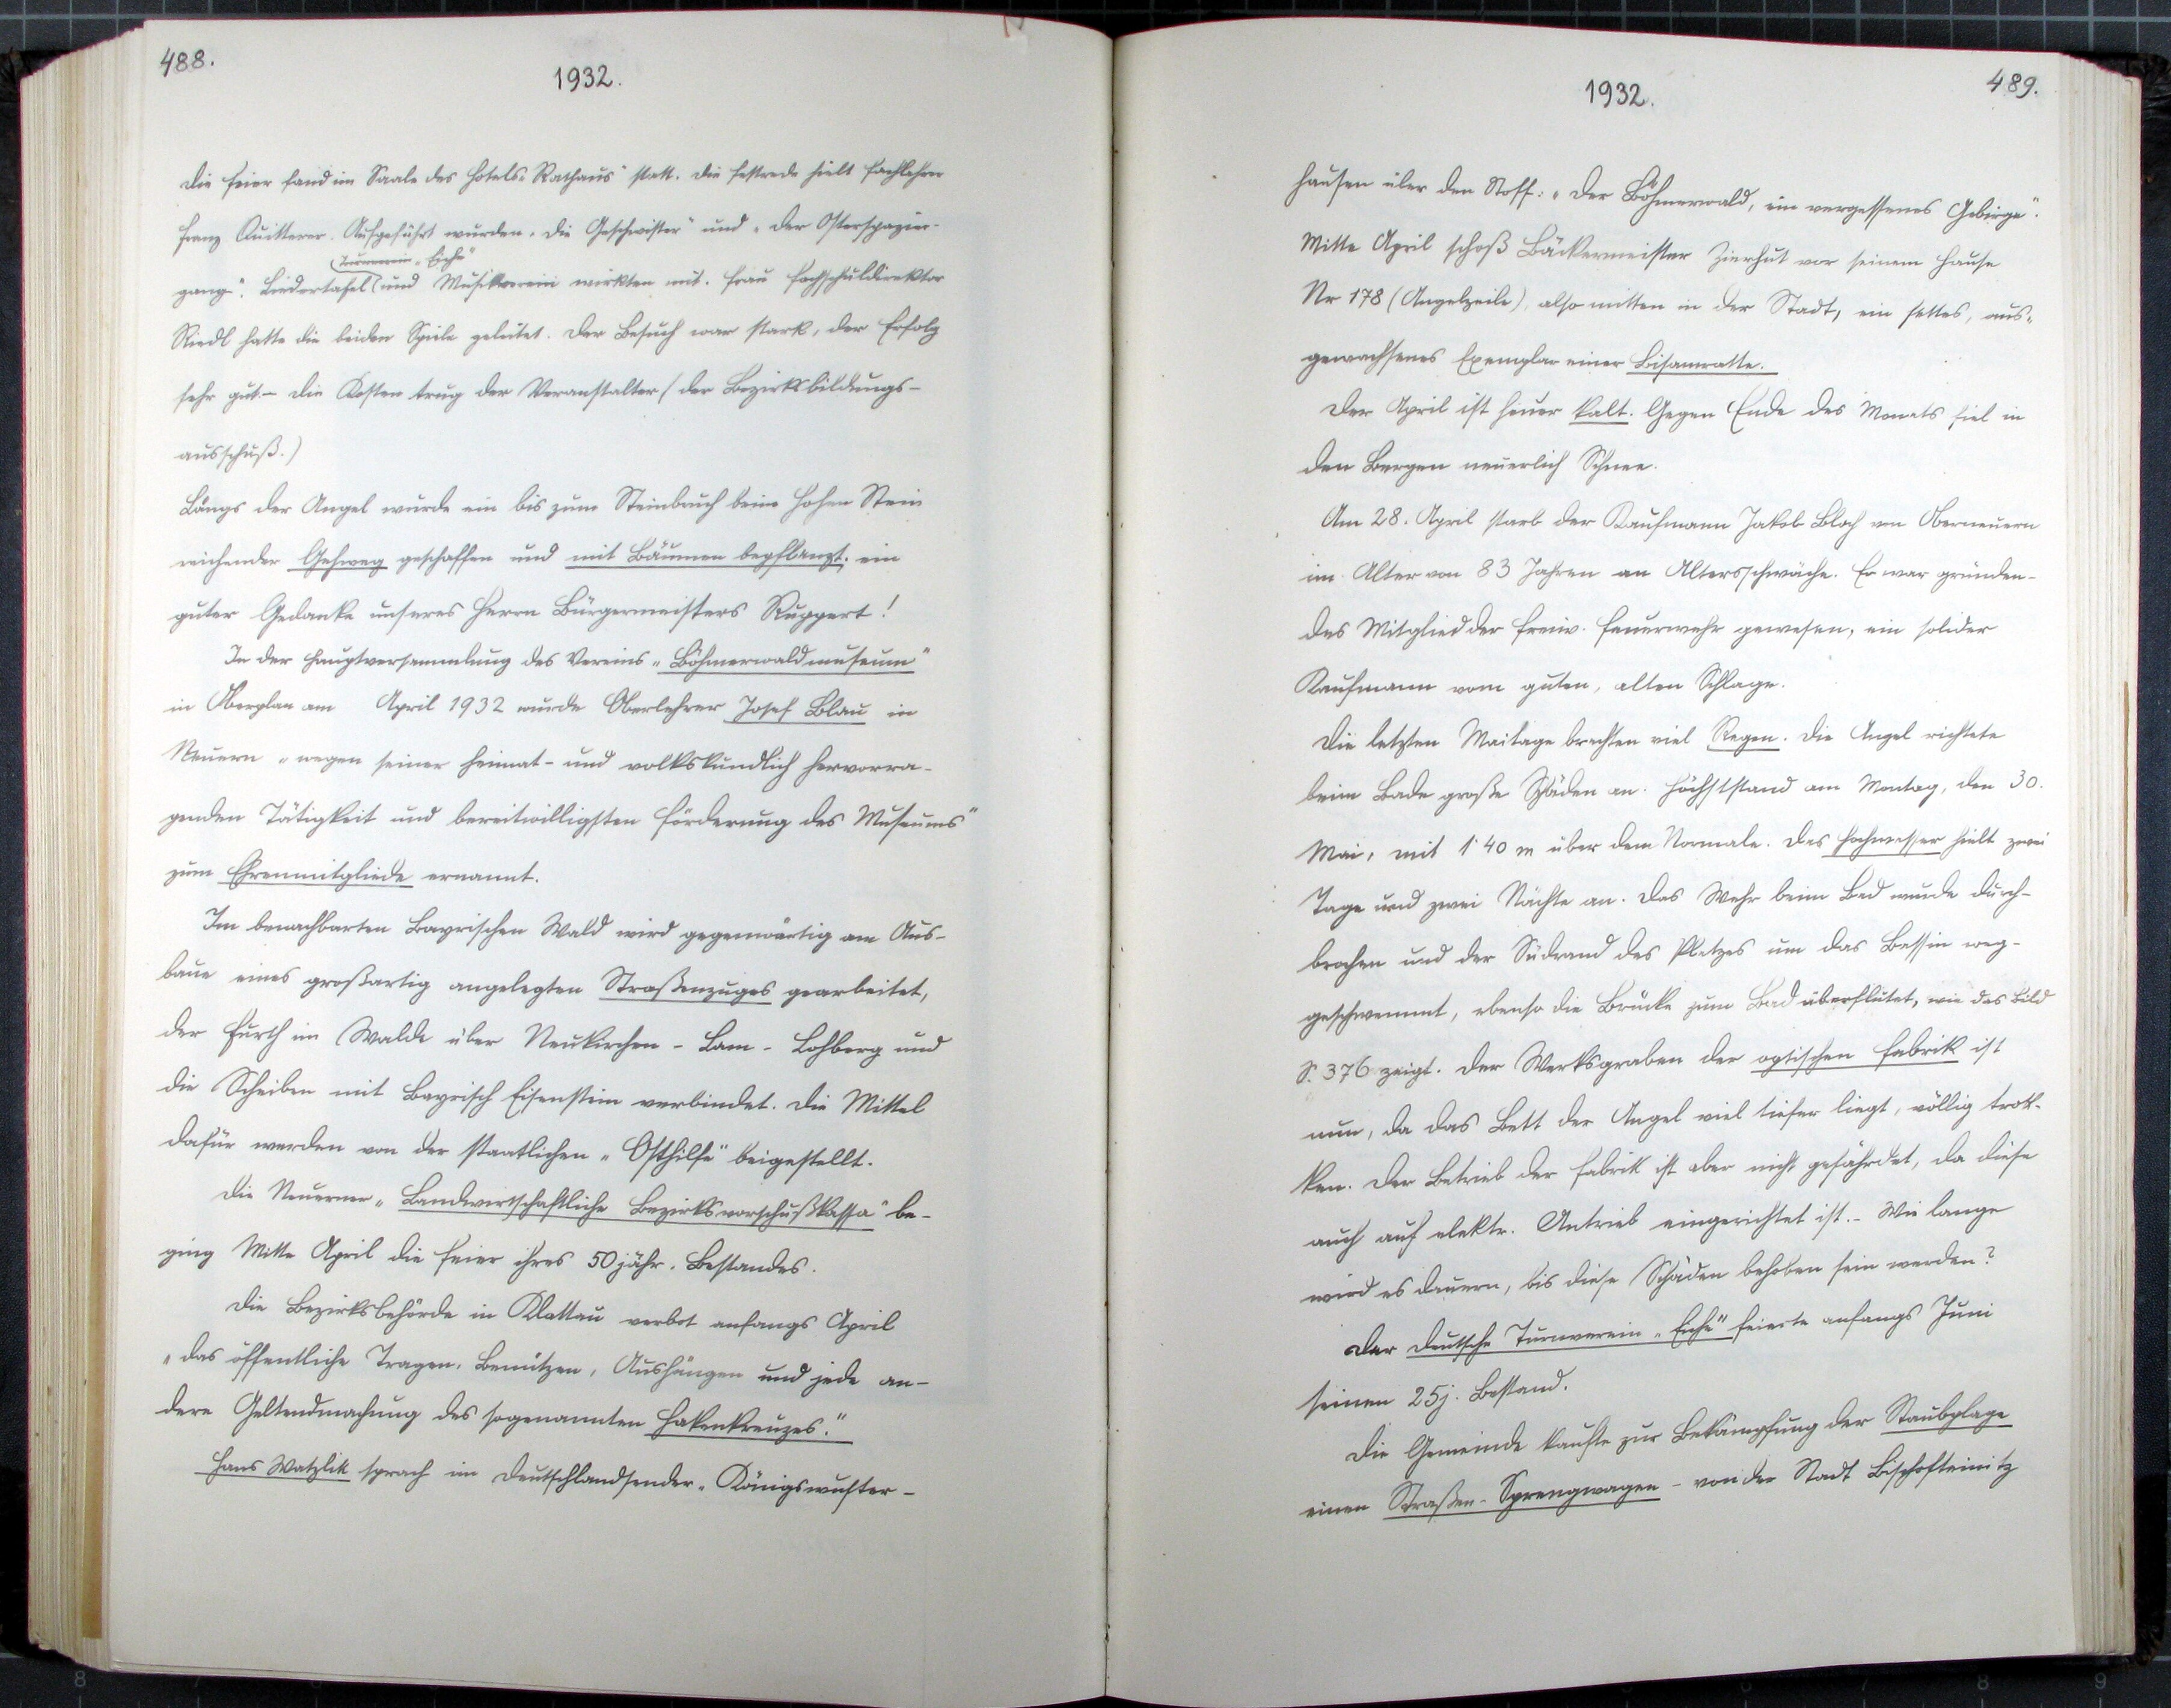 488.
1932.
Die Feier fand im Saale des Hotels „Rathaus" statt. Die Festrede hielt Fachlehrer
Franz Quitterer. Aufgeführt wurden „Die Geschwister" und „Der Osterspazier-
Turnverein „Eiche"
gang". Liedertafel und Musikverein wirkten mit. Frau Fachschuldirektor
Riedl hatte die beiden Spiele geleitet. Der Besuch war stark, der Erfolg
sehr gut. – Die Kosten trug der Veranstalter (der Bezirksbildungs-
ausschuß.)
Längs der Angel wurde ein bis zum Steinbruch beim Hohen Stein
reichender Gehweg geschaffen und mit Bäumen bepflanzt, ein
guter Gedanke unseres Herrn Bürgermeisters Ruppert!
In der Hauptversammlung des Vereins „Böhmerwaldmuseum"
in Oberplan am April 1932 wurde Oberlehrer Josef Blau in
Neuern „wegen seiner heimat- und volkskundlich hervorra-
genden Tätigkeit und bereitwilligsten Förderung des Museums"
zum Ehrenmitgliede ernannt.
Im benachbarten Bayrischen Wald wird gegenwärtig am Aus-
baue eines großartig angelegten Straßenzuges gearbeitet,
der Furth im Walde über Neukirchen - Lam - Lohberg und
die Scheiben mit Bayrisch Eisenstein verbindet. Die Mittel
dafür werden von der staatlichen „Osthilfe" beigestellt.
Die Neuerner „Landwirtschaftliche Bezirksvorschußkassa" be-
ging Mitte April die Feier ihres 50jähr. Bestandes.
Die Bezirksbehörde in Klattau verbot anfangs April
„das öffentliche Tragen, Benützen, Aushängen und jede an-
dere Geltendmachung des sogenannten Hakenkreuzes."
Hans Watzlik sprach im Deutschlandsender „Königswuster-
1932.
489.
hausen über den Stoff: „Der Böhmerwald, ein vergessenes Gebirge".
Mitte April schoß Bäckermeister Zierhut vor seinem Hause
Nr 178 (Angelzeile), also mitten in der Stadt, ein fettes, aus-
gewachsenes Exemplar einer Bisamratte.
Der April ist heuer kalt. Gegen Ende des Monats fiel in
den Bergen neuerlich Schnee.
Am 28. April starb der Kaufmann Jakob Bloch von Oberneuern
im Alter von 83 Jahren an Altersschwäche. Er war gründen-
des Mitglied der freiw. Feuerwehr gewesen, ein solider
Kaufmann vom guten, alten Schlage.
Die letzten Maitage brachten viel Regen. Die Angel richtete
beim Bade große Schäden an. Höchststand am Montag, den 30.
Mai, mit 1·40 m über dem Normale. Das Hochwasser hielt zwei
Tage und zwei Nächte an. Das Wehr beim Bad wurde durch-
brochen und der Südrand des Platzes um das Bassin weg-
geschwemmt, ebenso die Brücke zum Bad überflutet, wie das Bild
S. 376 zeigt. Der Werksgraben der optischen Fabrik ist
nun, da das Bett der Angel viel tiefer liegt, völlig trok-
ken. Der Betrieb der Fabrik ist aber nicht gefährdet, da diese
auch auf elektr. Antrieb eingerichtet ist. – Wie lange
wird es dauern, bis diese Schäden behoben sein werden?
Der Deutsche Turnverein „Eiche" feierte anfangs Juni
seinen 25j. Bestand.
Die Gemeinde kaufte zur Bekämpfung der Staubplage
einen Straßen-Sprengwagen – von der Stadt Bischofteinitz